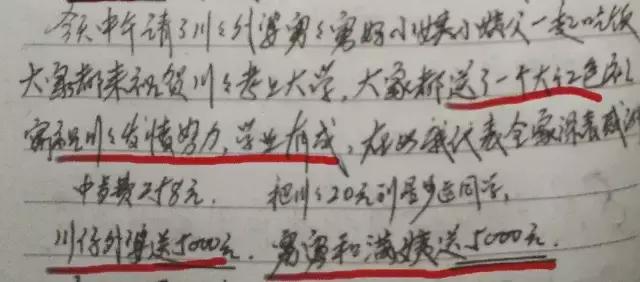 今天中午请了川川外婆舅舅舅妈小姨小姨父一起吃饭
大家都来祝贺川川考上大学,大家都送了一个大红包和
川川发愤努力,学业有成,在此我代表全家深表感谢
中餐费258元. 把川川20元到 同学,
川仔外婆送5000元. 舅舅和满姨送5000元.